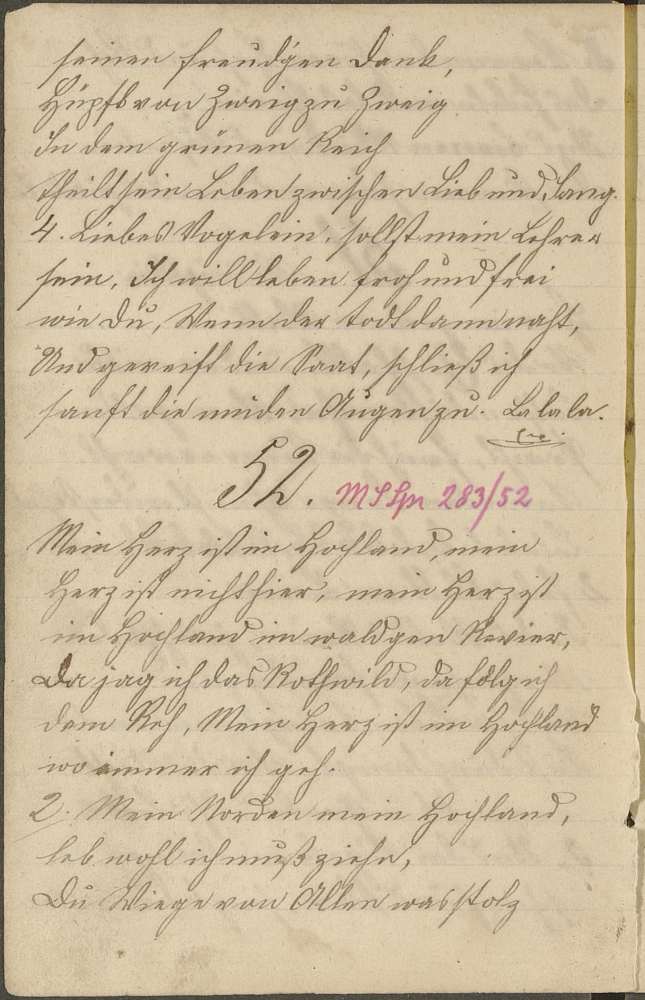 seinen freudgen Dank,
Hüpfb von Zweig zu Zweig
In dem grünen Reich
Theilt sein Leben zwischen Lieb und Sang.
4. Liebes Vögelein, sollst mein Lehrer
sein, Ich will leben froh und frei
wie Du, Wenn der todt dann naht,
Und gereift die Saat, schließ ich
sanft die müden Augen zu. La la la.
52. MS Lpr 283/52
Mein Herz ist im Hochland, mein
Herz ist nicht hier, mein Herz ist
im Hochland im waldgen Revier,
Da jag ich das Rothwild, da folg ich
dem Reh, Mein Herz ist im Hochland
wo immer ich geh.
2. Mein Norden mein Hochland,
leb wohl ich muß ziehn,
Du Wiege von Allen was stolz